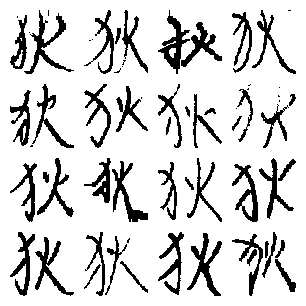 狄狄狄狄
狄狄狄狄
狄狄狄狄
狄狄狄狄